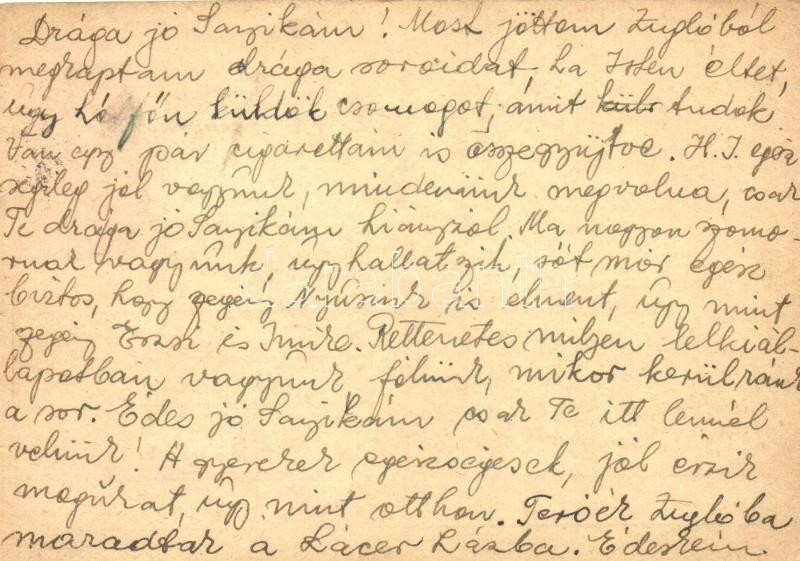 Drága jó Sanyikám! Most jöttem Zuglóból
megkaptam drága soroidat, ha Isten éltet,
úgy hétfőn küldök csomagot, ámit tudok
Van egy pár cigarettám is összegyűjtve. H. I. egés
ségileg jól vagyunk, mindenünk megvolna, csak
Te drága jó Sanyikám hiányzol. Ma nagyon szomo-
ruak vagyunk, úgy hallatszik, sőt már egész
biztos, hogy szegény is elment, úgy mint
szegény Erzsi és Imre. Rettenetes milyen lelkiál-
lapotban vagyunk, félünk, mikor kerül ránk
a sor. Édes jó Sanyikám csak Te itt lennél
velünk! A gyerekek egészségesek, jól érzik
magukat, úgy mint otthon. Zuglóba
maradtak a házba. Édeseim.
darabanth